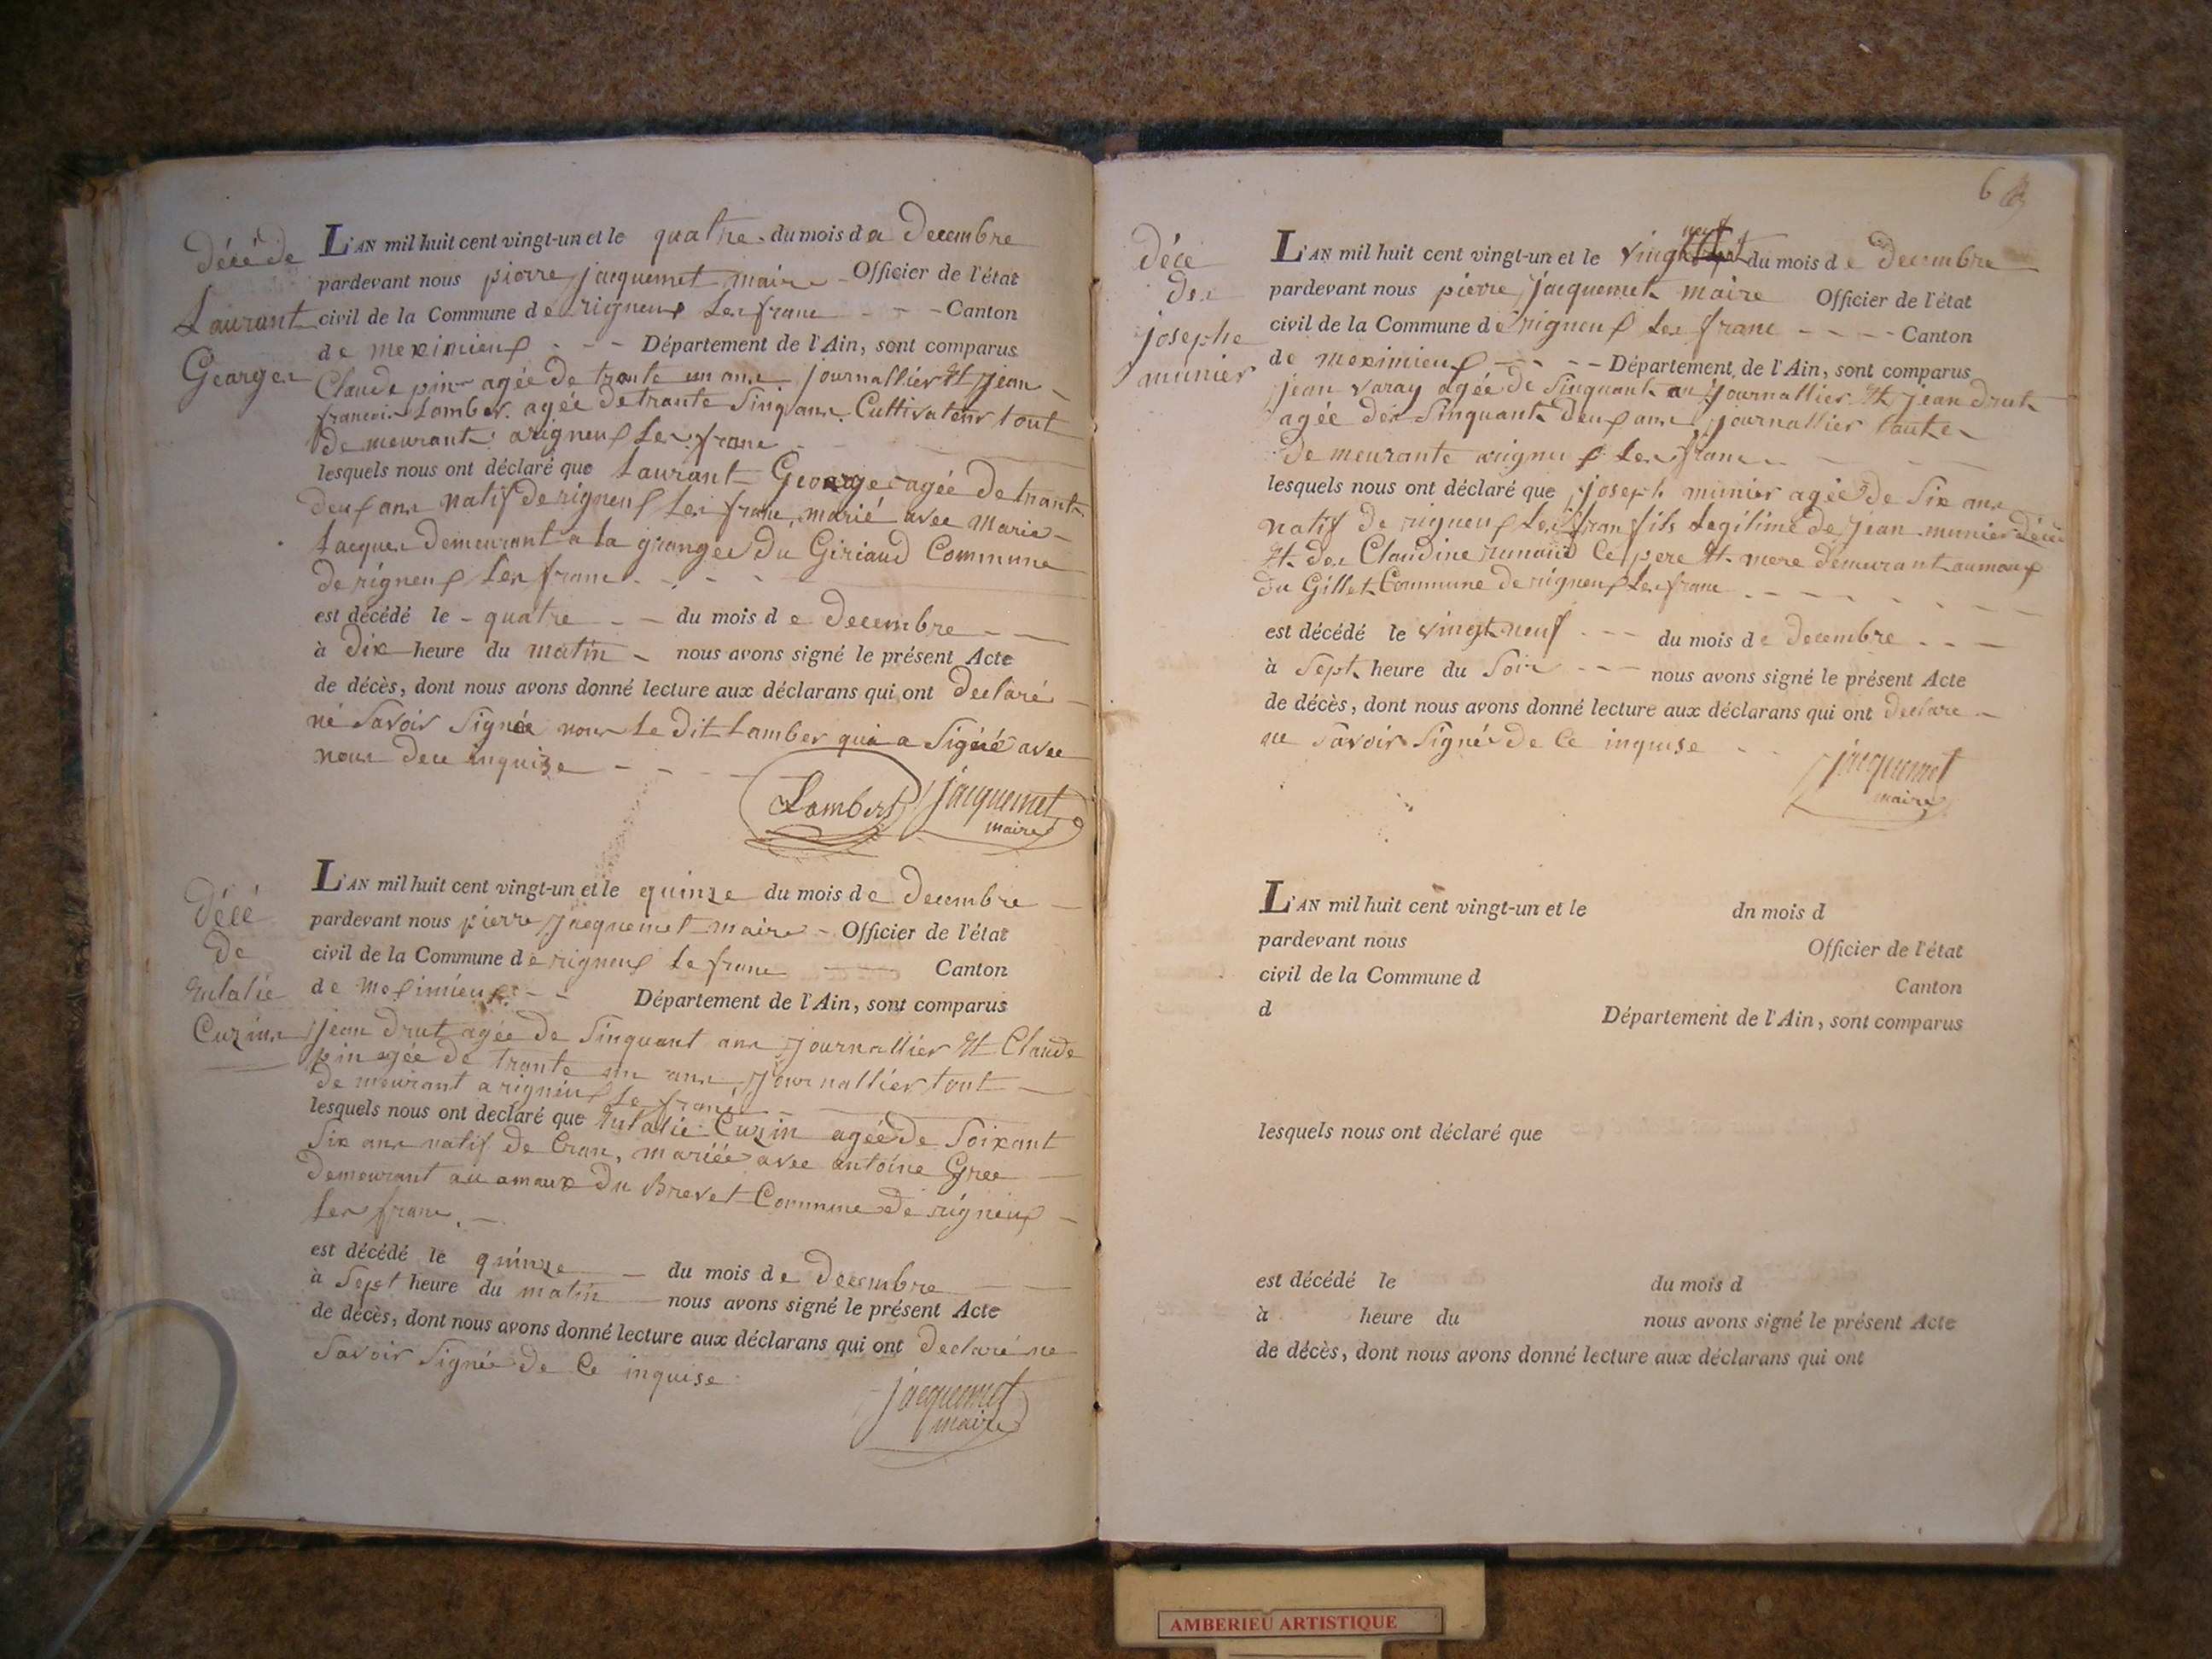 décé de
Laurant
George
L'AN mil huit cent vingt-un et le quatre du mois de decembre
pardevant nous pierre jacquemet maire Officier de l'état
civil de la Commune de rigneux Les franc - - - Canton
de meximieux - - - Département de l'Ain, sont comparus
Claude pin agée de trante un ans journallier Et jean
francois Lamber agée de trante Sinq ans Cultivateur tout
de meurant arigneux Les franc
lesquels nous ont déclaré que Laurant George agée de trante
deux ans natif de rigneux Les franc, marié avec Marie
Jacques demeurant a la granges du Giriaud Commune
de rigneux Les franc - - - -
est décédé le - quatre - - du mois de decembre - -
à dix heure du matin - nous avons signé le présent Acte
de décès, dont nous avons donné lecture aux déclarans qui ont declaré
né Savoir Signée nous Le dit Lamber qui a Signé avec
nous dece inquise - - - -
Lambert jacquemet
maire
décé
de
Eulalie
Curinne
L'AN mil huit cent vingt-un et le quinze du mois de decembre
pardevant nous pierre jacquemet maire - Officier de l'état
civil de la Commune de rigneux Le franc - Canton
de meximieux - - Département de l'Ain, sont comparus
jean drut agée de Sinquant ans journallier Et Claude
pin agée de trante un ans, journallier tout
de meurant a rigneux Le franc
lesquels nous ont declaré que Eulalie Curin agée de Soixant
Six ans natif de Cran, mariée avec antoine Gree
demeurant au amaux du Brevet Commune de rigneux
Les franc. -
est décédé le quinze - du mois de decembre
à Sept heure du matin nous avons signé le présent Acte
de décès, dont nous avons donné lecture aux déclarans qui ont declaré ne
Savoir Signée de Ce inquise
jacquemet
maire
6
déce
des
josephe
munier
L'AN mil huit cent vingt-un et le vingt neuf du mois de decembre
pardevant nous pierre jacquemet maire Officier de l'état
civil de la Commune de rigneux Les franc - - - - Canton
de meximieux - - - - Département de l'Ain, sont comparus
jean varay agée de Sinquant an journallier Et jean drut
agée des Sinquante deux ans journallier toute
de meurante arigneux Les franc
lesquels nous ont déclaré que joseph munier agée de Six ans
natif de rigneux Les fran fils Legitime de jean munier
Et des Claudine runand Ce pere Et mere demeurant aumaux
du Gillet Commune de rigneux Les franc - - - - - -
est décédé le vingt neuf - - - du mois de decembre - - -
à Sept heure du Soir - - - nous avons signé le présent Acte
de décès, dont nous avons donné lecture aux déclarans qui ont declare
ne Savoir Signée de Ce inquise - -
jacquemet
maire
L'AN mil huit cent vingt-un et le dn mois d
pardevant nous Officier de l'état
civil de la Commune d Canton
d Département de l'Ain, sont comparus
lesquels nous ont déclaré que
est décédé le du mois d
à heure du nous avons signé le présent Acte
de décès, dont nous avons donné lecture aux déclarans qui ont
AMBERIEU ARTISTIQUE